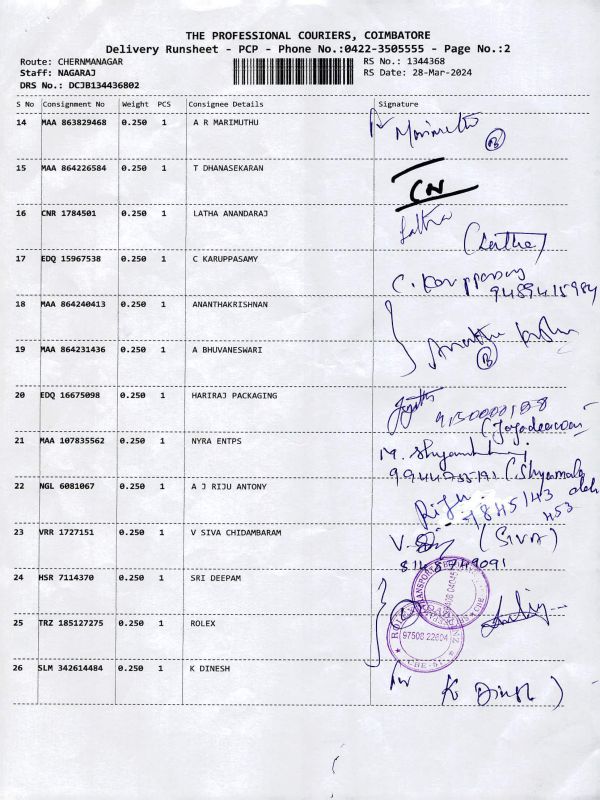 THE PROFESSIONAL COURIERS, COIMBATORE
Delivery Runsheet - PCP - Phone No.:0422-3505555 - Page No.:2
Route: CHERNMANAGAR RS No.: 1344368
Staff: NAGARAJ RS Date: 28-Mar-2024
DRS No.: DCJB134436802
S No Consignment No Weight PCS Consignee Details Signature
14 MAA 863829468 0.250 1 A R MARIMUTHU Marimuthu
15 MAA 864226584 0.250 1 T DHANASEKARAN CN
16 CNR 1784501 0.250 1 LATHA ANANDARAJ Latha
(Latha)
17 EDQ 15967538 0.250 1 C KARUPPASAMY C. Karuppasamy
9489415984
18 MAA 864240413 0.250 1 ANANTHAKRISHNAN
19 MAA 864231436 0.250 1 A BHUVANESWARI
20 EDQ 16675098 0.250 1 HARIRAJ PACKAGING
21 MAA 107835562 0.250 1 NYRA ENTPS M.
(Shyamala
22 NGL 6081067 0.250 1 A J RIJU ANTONY Riju
23 VRR 1727151 0.250 1 V SIVA CHIDAMBARAM V. (SIVA)
8148749091
24 HSR 7114370 0.250 1 SRI DEEPAM
25 TRZ 185127275 0.250 1 ROLEX
97508 22604
26 SLM 342614484 0.250 1 K DINESH K Dinesh)